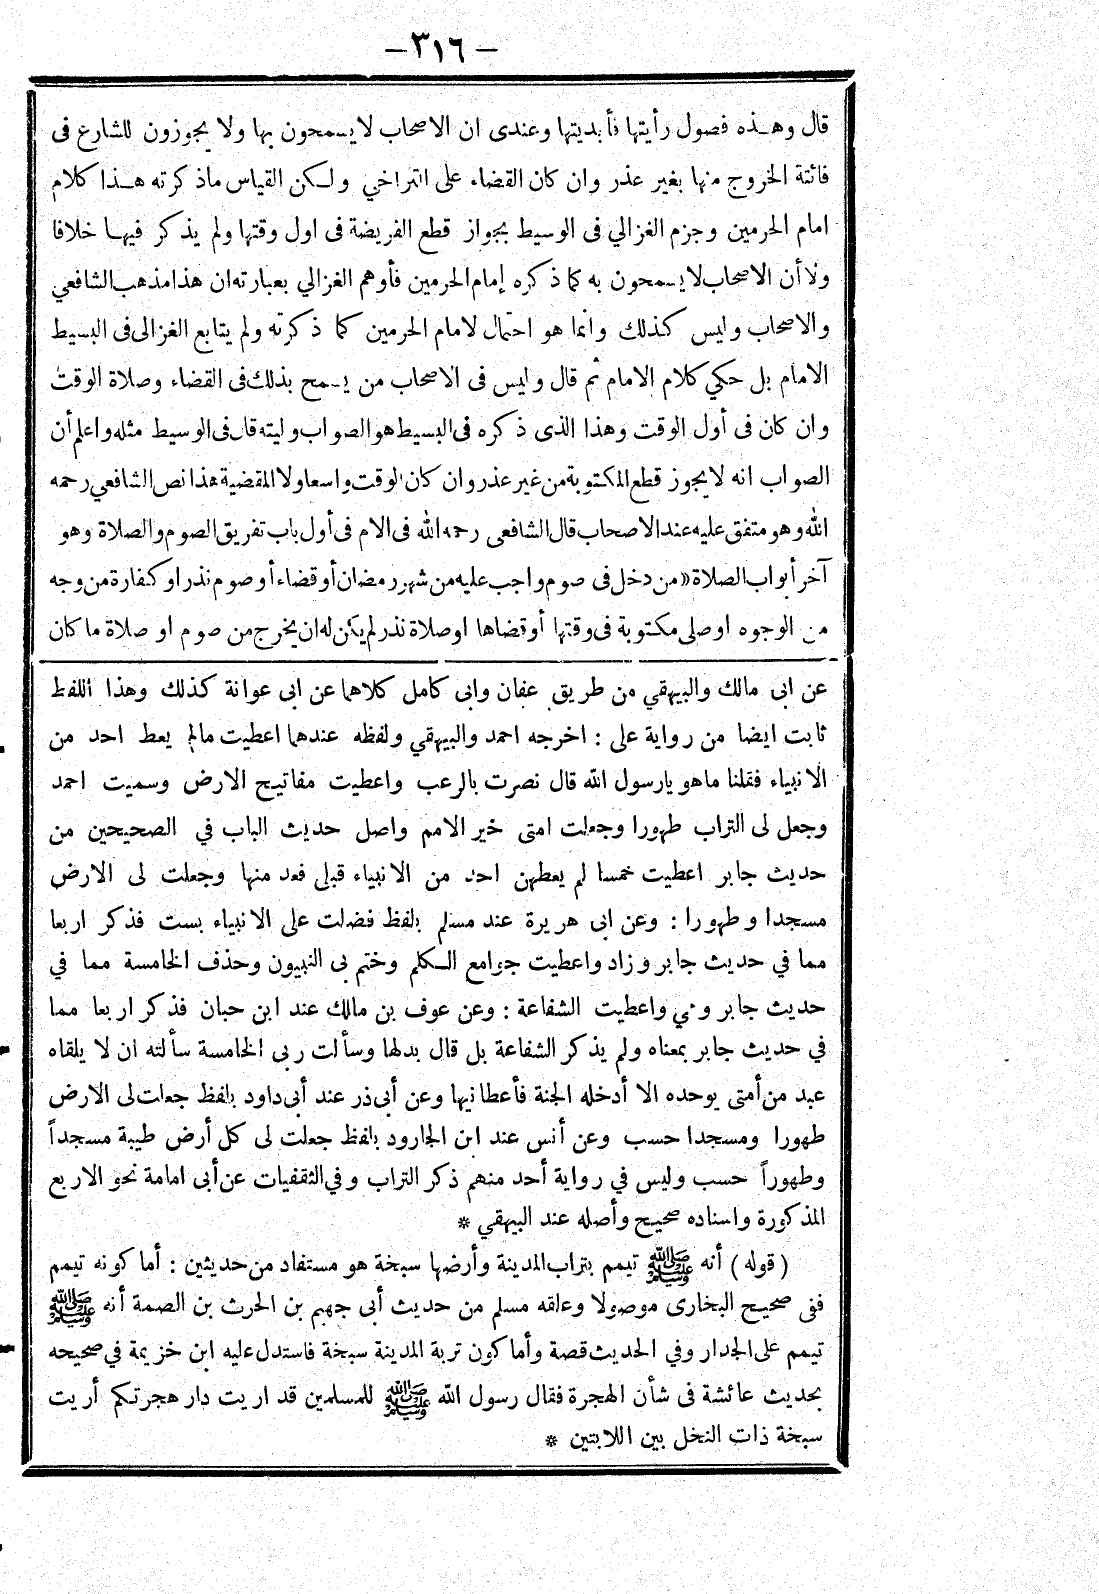 — ٣١٦ —
قال وهذه فصول رأيتها فأبديتها وعندى ان الاصحاب لا يسمحون بها ولا يجوزون للشارع فى
فائتة الخروج منها بغير عذر وان كان القضاء على التراخي ولكن القياس ماذكرته هذا كلام
امام الحرمين وجزم الغزالي فى الوسيط بجواز قطع الفريضة فى اول وقتها ولم يذكر فيها خلافا
ولا أن الاصحاب لا يسمحون به كما ذكره إمام الحرمين فأوهم الغزالي بعبارته ان هذا مذهب الشافعي
والاصحاب وليس كذلك وانما هو احتمال لامام الحرمين كما ذكرته ولم يتابع الغزالى فى البسيط
الامام بل حكي كلام الامام ثم قال وليس فى الاصحاب من يسمح بذلك فى القضاء وصلاة الوقت
وان كان فى أول الوقت وهذا الذى ذكره فى البسيط هو الصواب وليته قال فى الوسيط مثله واعلم أن
الصواب انه لا يجوز قطع المكتوبة من غير عذر وان كان الوقت واسعا ولا المقضية هذا نص الشافعي رحمه
الله وهو متفق عليه عند الاصحاب قال الشافعى رحمه الله فى الام فى أول باب تفريق الصوم والصلاة وهو
آخر أبواب الصلاة «من دخل فى صوم واجب عليه من شهر رمضان أو قضاء أو صوم نذر او كفارة من وجه
من الوجوه او صلى مكتوبة فى وقتها أو قضاها او صلاة نذر لم يكن له ان يخرج من صوم او صلاة ما كان
عن ابى مالك والبيهقي من طريق عفان وابى كامل كلاهما عن ابى عوانة كذلك وهذا اللفظ
ثابت ايضا من رواية على : اخرجه احمد والبيهقي ولفظه عندهما اعطيت مالم يعط احد من
الانبياء فقلنا ماهو يارسول الله قال نصرت بالرعب واعطيت مفاتيح الارض وسميت احمد
وجعل لى التراب طهورا وجعلت امتى خير الامم واصل حديث الباب في الصحيحين من
حديث جابر اعطيت خمسا لم يعطهن احد من الانبياء قبلى فعد منها وجعلت لى الارض
مسجدا وطهورا : وعن ابى هريرة عند مسلم بلفظ فضلت على الانبياء بست فذكر اربعا
مما في حديث جابر وزاد واعطيت جوامع الكلم وختم بى النبيون وحذف الخامسة مما في
حديث جابر وهي واعطيت الشفاعة : وعن عوف بن مالك عند ابن حبان فذكر اربعا مما
في حديث جابر بمعناه ولم يذكر الشفاعة بل قال بدلها وسألت ربى الخامسة سألته ان لا يلقاه
عبد من أمتى يوحده الا أدخله الجنة فأعطانيها وعن أبى ذر عند أبى داود بلفظ جعلت لى الارض
طهورا ومسجدا حسب وعن أنس عند ابن الجارود بلفظ جعلت لى كل أرض طيبة مسجداً
وطهوراً حسب وليس في رواية أحد منهم ذكر التراب وفي الثقفيات عن أبى امامة نحو الاربع
المذكورة واسناده صحيح وأصله عند البيهقي *
( قوله ) أنه ﷺ تيمم بتراب المدينة وأرضها سبخة هو مستفاد من حديثين : أما كونه تيمم
ففى صحيح البخارى موصولا وعلقه مسلم من حديث أبى جهيم بن الحرث بن الصمة أنه ﷺ
تيمم على الجدار وفي الحديث قصة وأما كون تربة المدينة سبخة فاستدل عليه ابن خزيمة في صحيحه
بحديث عائشة فى شأن الهجرة فقال رسول الله ﷺ للمسلمين قد اريت دار هجرتكم أريت
سبخة ذات النخل بين اللابتين *